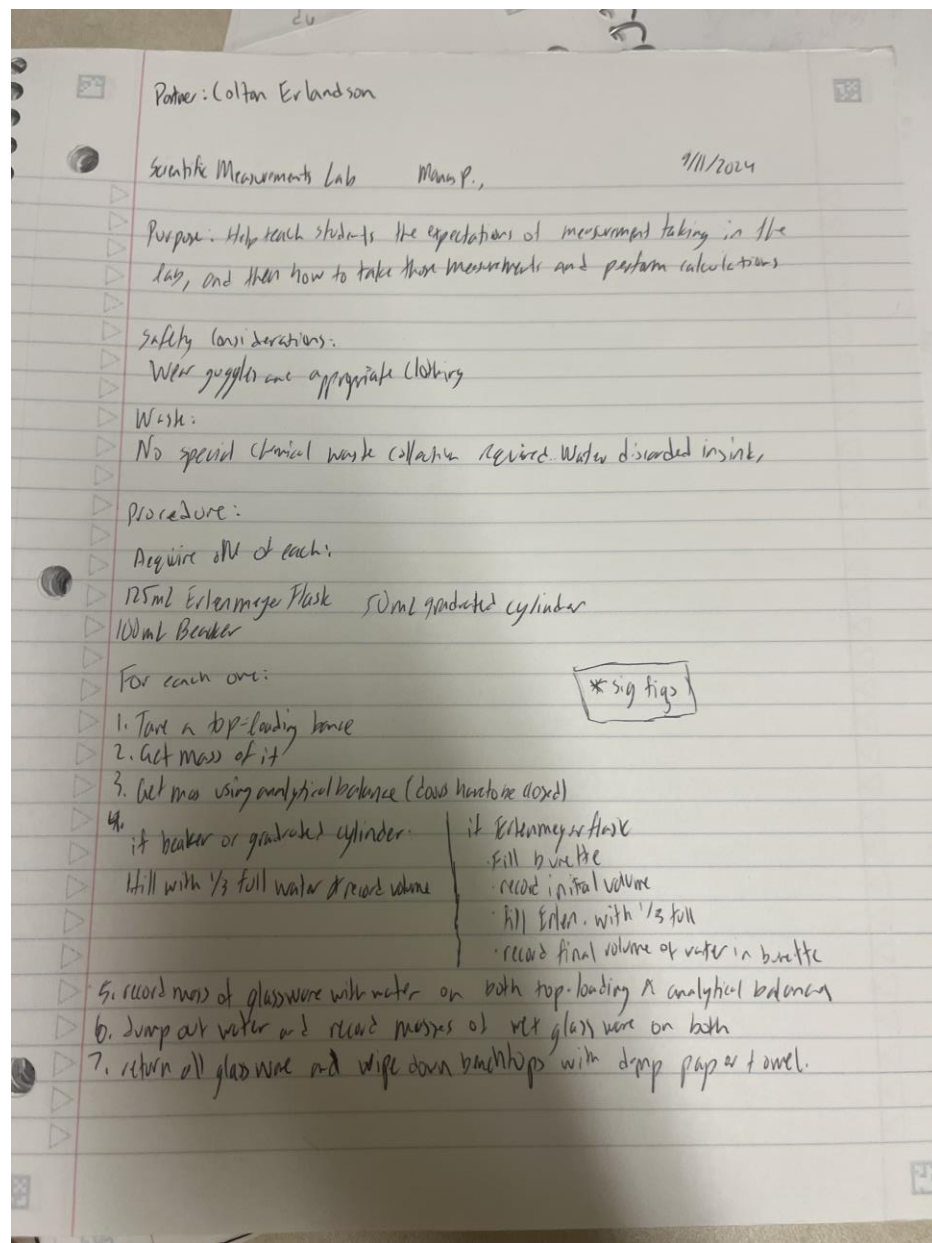 Partner: Colton Erlandson
Scientific Measurements Lab P., 9/11/2024
Purpose: Help teach students the expectations of measurement taking in the
lab, and then how to take those measurements and perform calculations
Safety Considerations:
Wear goggles and appropriate clothing
Waste:
No special chemical waste collection required. Water discarded in sink.
Procedure:
Acquire one of each:
125mL Erlenmeyer Flask 50mL graduated cylinder
100mL Beaker
For each one:
* sig figs
1. Tare a top-loading
2. Get mass of it
3. Get mass using analytical balance (doors have to be closed)
4.
if beaker or graduated cylinder.
fill with 1/3 full water & record volume
if Erlenmeyer flask
· Fill burette
· record initial volume
· fill Erlen. with 1/3 full
· record final volume of water in burette
5. record mass of glassware with water on both top-loading & analytical balances
6. dump out water and record masses of wet glassware on both
7. return all glassware and wipe down benchtops with damp paper towel.